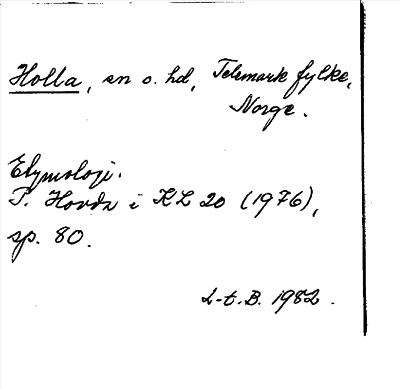 Holla, sn o. hd, Telemark fylke,
Norge.
Etymologi.
P. Hovda i KL 20 (1976),
sp. 80.
L-t. B. 1982.